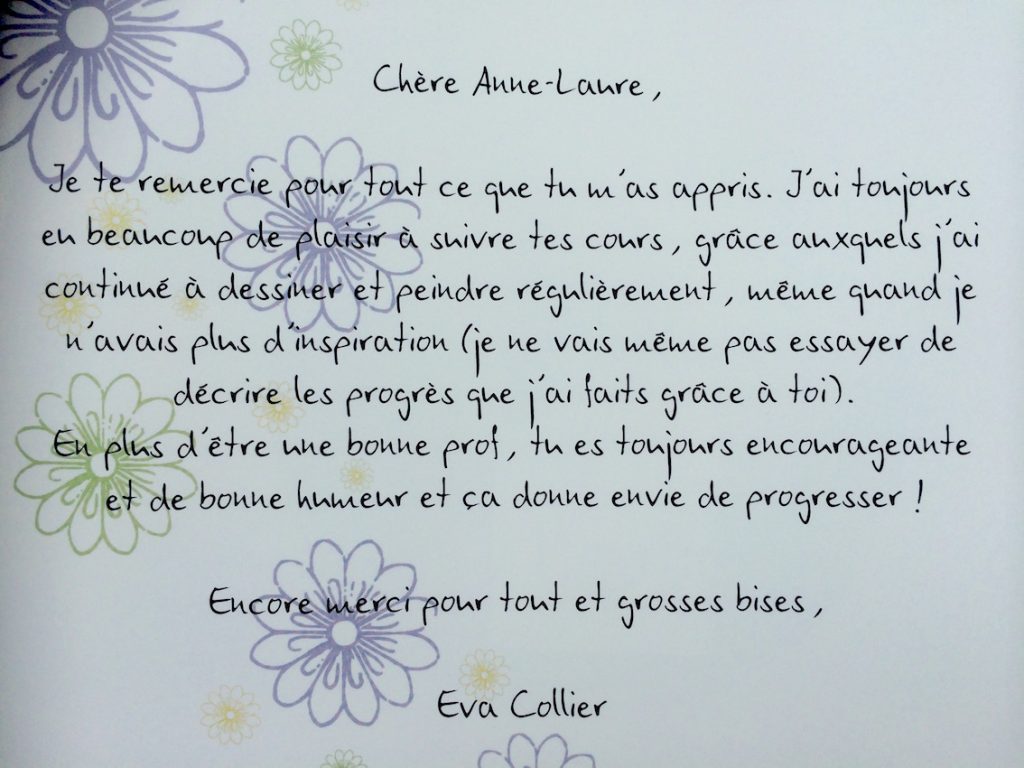 Chère Anne-Laure,
Je te remercie pour tout ce que tu m'as appris. J'ai toujours
eu beaucoup de plaisir à suivre tes cours, grâce auxquels j'ai
continué à dessiner et peindre régulièrement, même quand je
n'avais plus d'inspiration (je ne vais même pas essayer de
décrire les progrès que j'ai faits grâce à toi).
En plus d'être une bonne prof, tu es toujours encourageante
et de bonne humeur et ça donne envie de progresser !
Encore merci pour tout et grosses bises,
Eva Collier